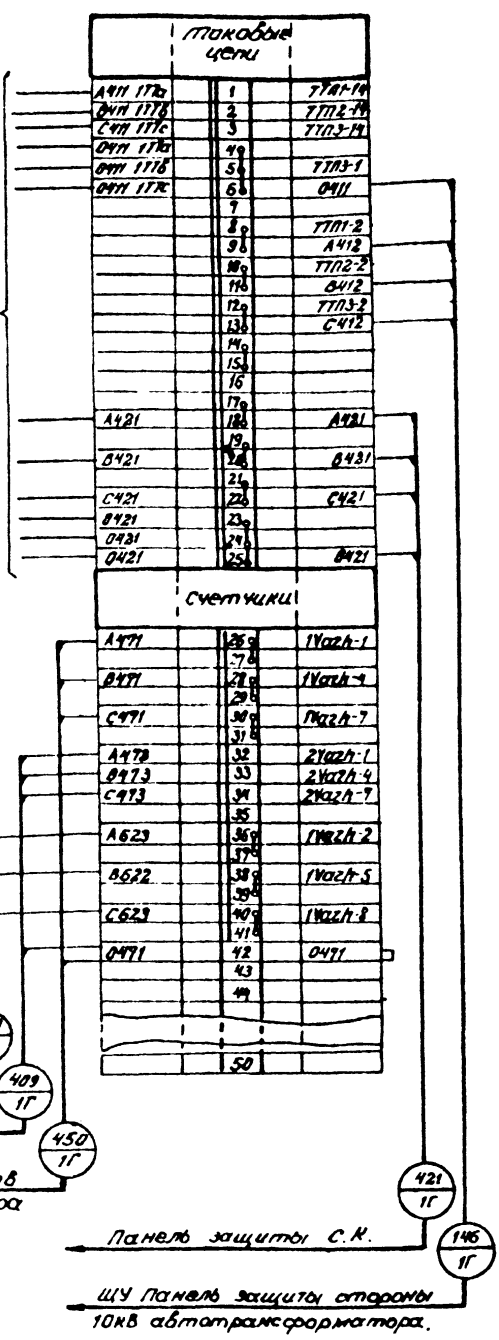 Токовые
цепи
А411 1ТТа 1 ТТП1-14
В411 1ТТв 2 ТТП2-14
С411 1ТТс 3 ТТП3-14
О411 1ТТа 4
О411 1ТТв 5 ТТП3-1
О411 1ТТс 6 О411
7
8 ТТП1-2
9 А412
10 ТТП2-2
11 В412
12 ТТП3-2
13 С412
14
15
16
17
А421 18 А421
19
В421 20 В421
21
С421 22 С421
В421 23
О421 24
О421 25 В421
Счетчики
А471 26 1Varh-1
27
В471 28 1Varh-4
29
С471 30 1Varh-7
31
А473 32 2Varh-1
В473 33 2Varh-4
С473 34 2Varh-7
35
А623 36 1Varh-2
37
В622 38 1Varh-5
39
С623 40 1Varh-8
41
О471 42 О471
43
44
50
409
1Г
450
1Г
421
1Г
Панель защиты С.К.
146
1Г
ЩУ Панель защиты стороны
10кв автотрансформатора.